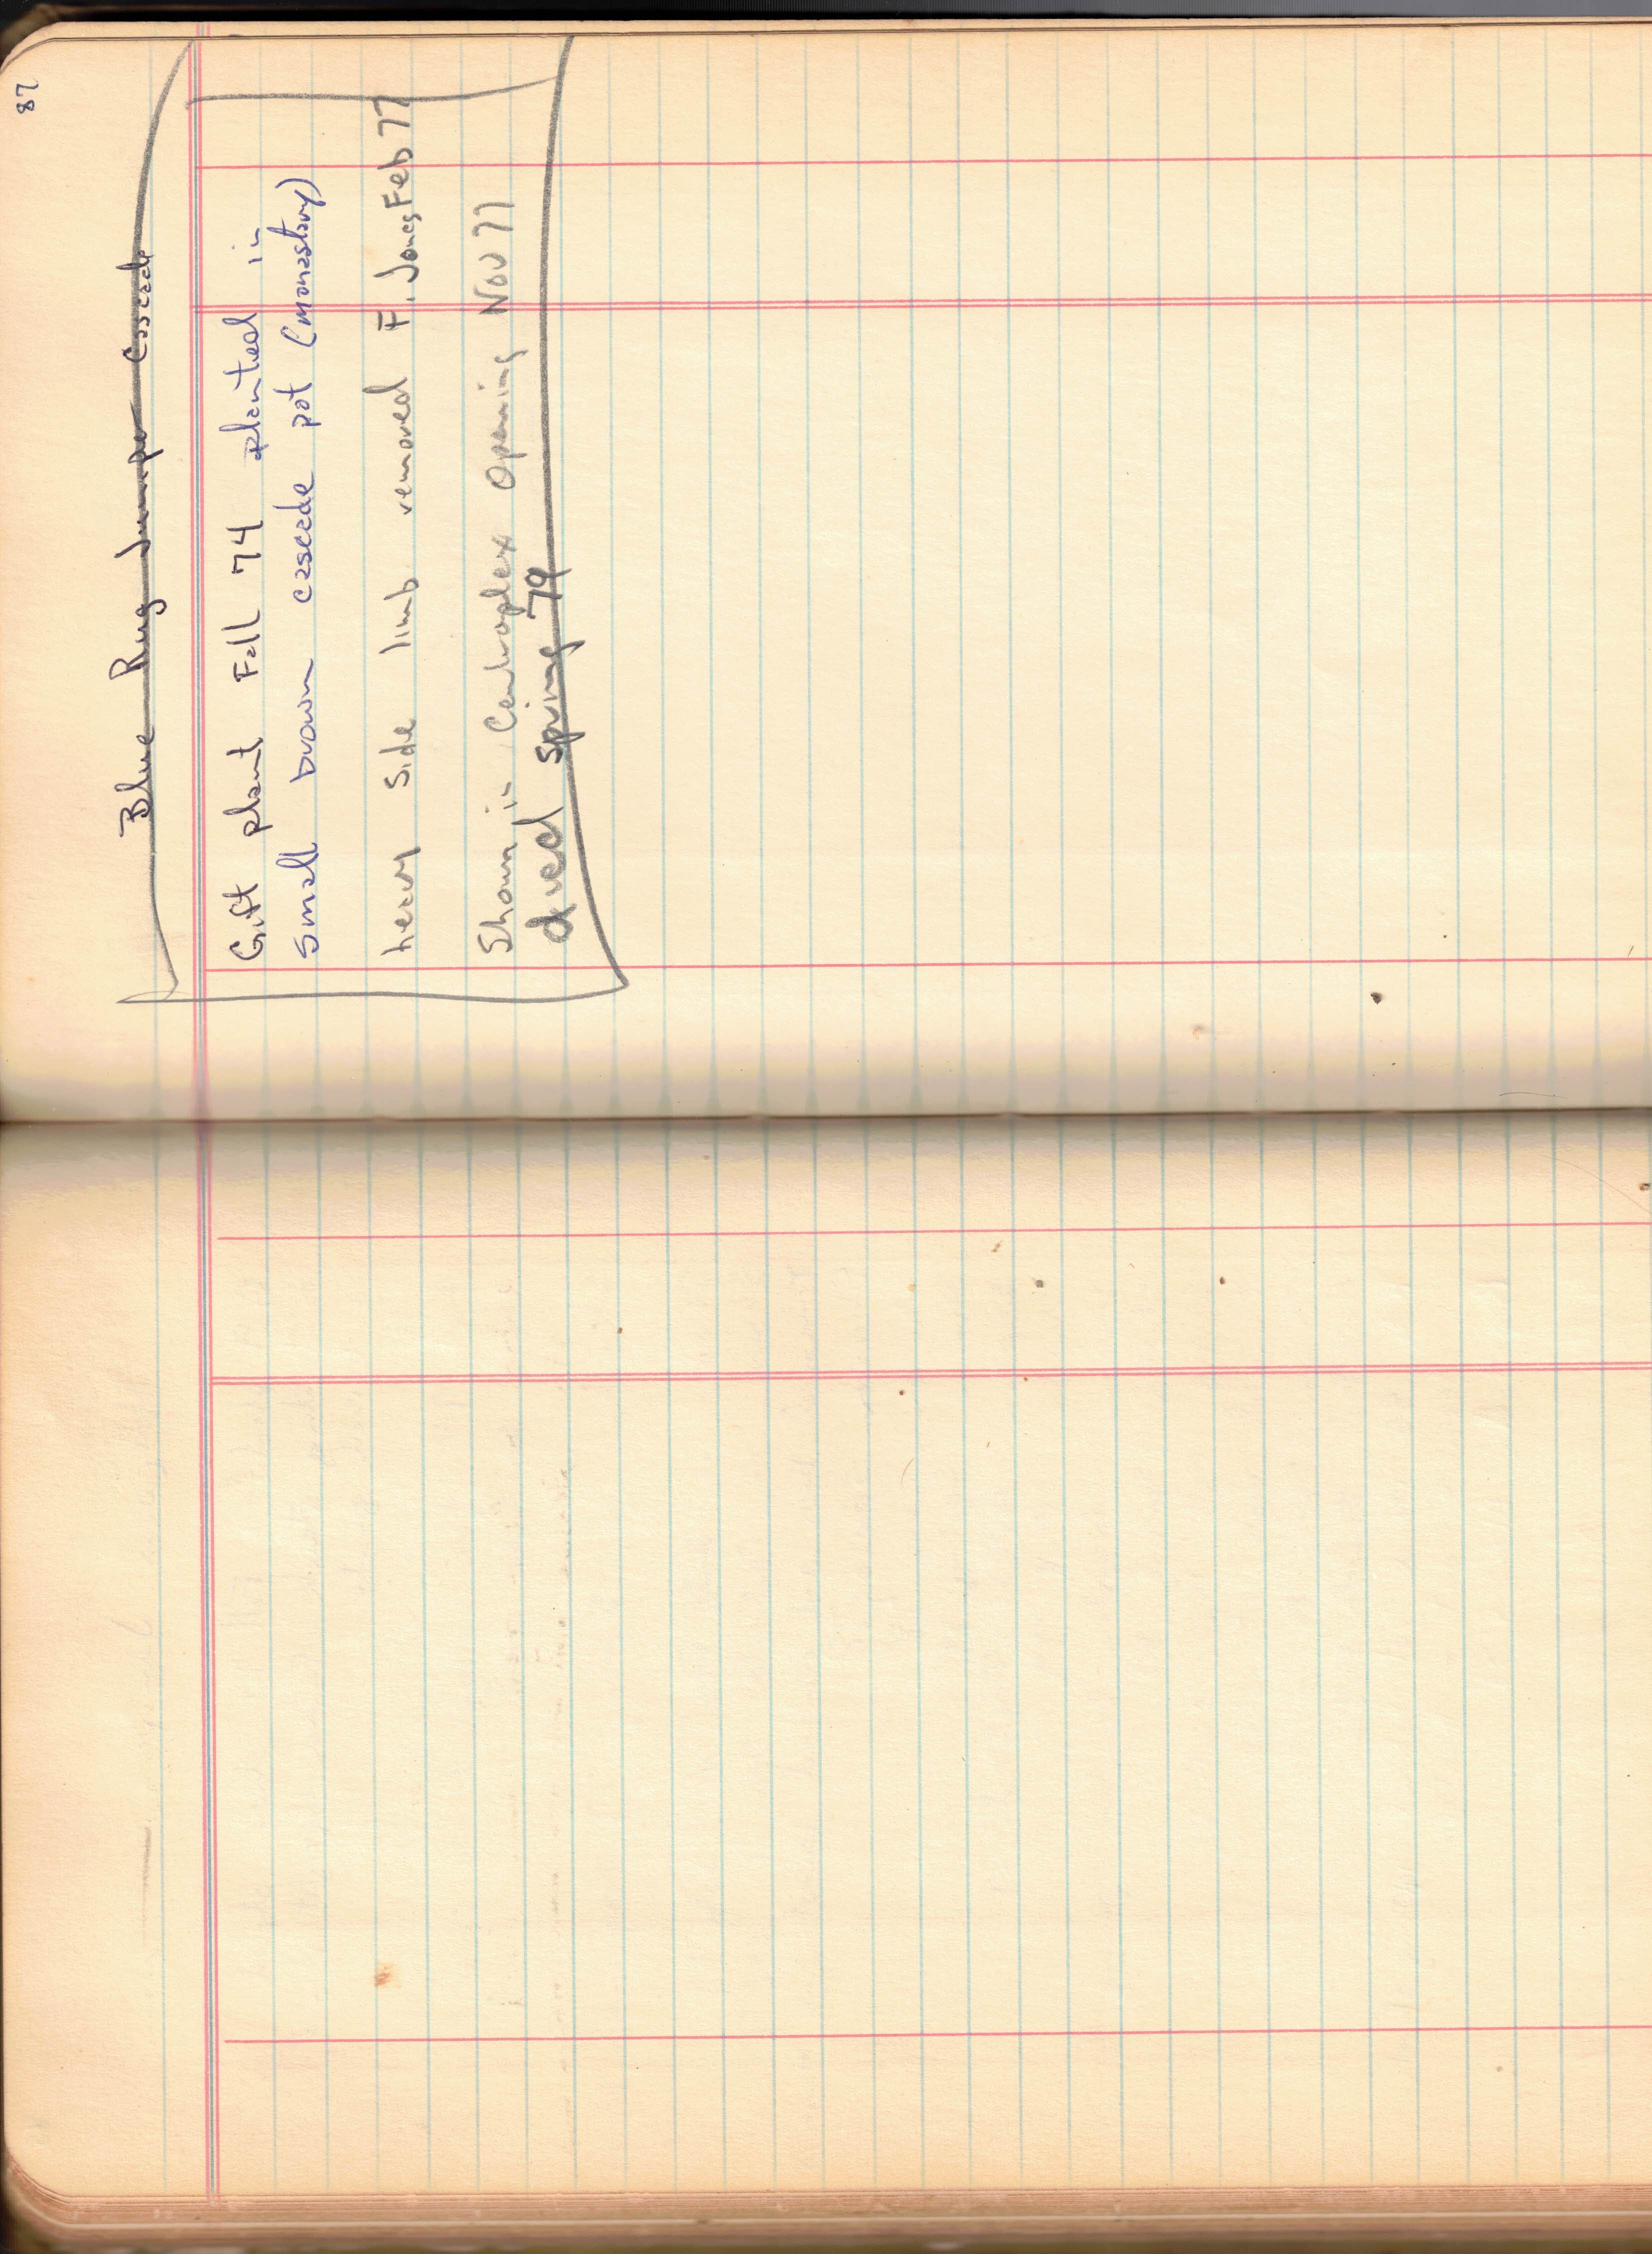 87
Blue Rug Juniper Cascade
Gift plant Fall 74 planted in
small brown cascade pot (monastary)
heavy side limb removed F. Jones Feb 77
Shown in Centroplex Opening Nov 77
died spring 79